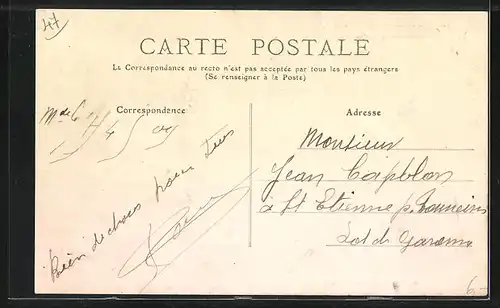 47
CARTE POSTALE
La Correspondance au recto n'est pas acceptée par tous les pays étrangers
(Se renseigner à la Poste)
Correspondance
Adresse
Bien de choses pour tous
Monsieur
Jean Capblan
à St Etienne p. Tonneins
Lot et Garonne
6-